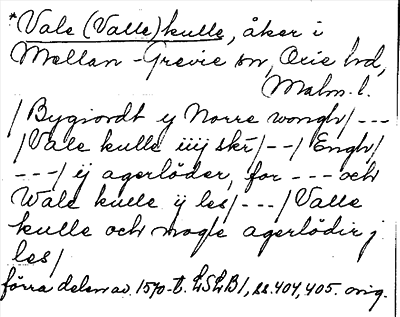 *Vale (Valle) kulle, åker i
Mellan-Grevie sn, Oxie hd,
Malm. l.
/Bygiordt y Norre wongh/ ---
/Vale kulle iiij skr/--/Engh/
---/ ij agerlöder, for --- och
Wale kulle ij les/---/Valle
kulle och nogle agerlödir j
les/
förra delen av. 1570-t. LSLB1, ss. 404, 405. orig.